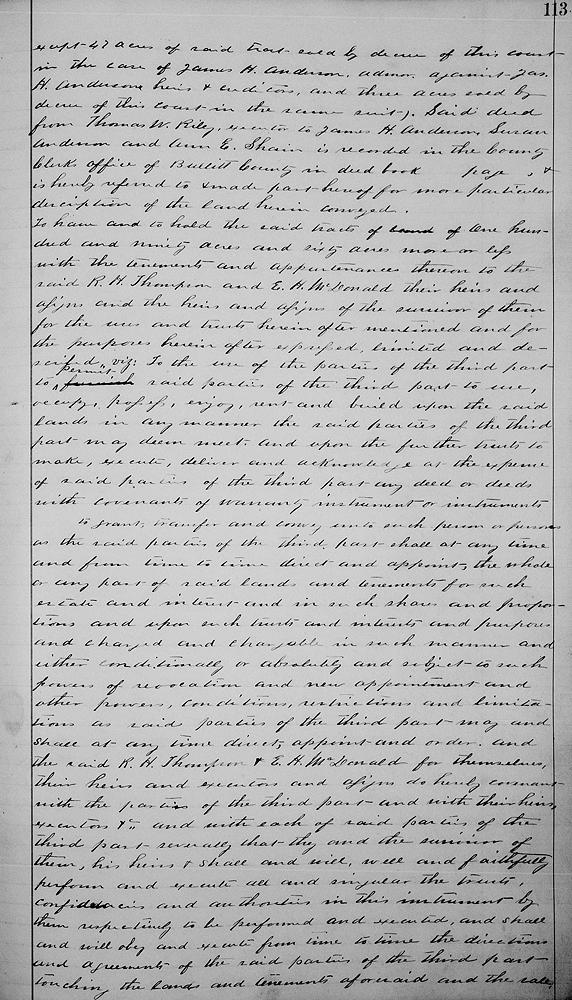 113
except 47 acres of said tract sold by decree of this court
in the case of James H. Anderson, admor. against Jas.
H. Andersons heirs & creditors, and three acres sold by
decree of this court in the same suit). Said deed
from Thomas W. Riley, executor to James H. Anderson, Susan
Anderson and Ann E. Shain is recorded in the County
Clerks office of Bullitt County in deed book page , &
is hereby referred to & made part hereof for more particular
description of the land herein conveyed.
To have and to hold the said tracts of One hun-
dred and ninety acres and sixty acres more or less
with the tenements and appurtenances thereon to the
said R. H. Thompson and E. H. McDonald their heirs and
assigns and the heirs and assigns of the survivor of them
for the uses and trusts herein after mentioned and for
the purposes herein after expressed, limited and de-
scribed, viz: To the use of the parties of the third part
to permit said parties of the third part to use,
occupy, possess, enjoy, rent and build upon the said
lands in any manner the said parties of the third
part may deem meet. and upon the further trusts to
make, execute, deliver and acknowledge at the expense
of said parties of the third part any deed or deeds
with covenants of warranty instrument or instruments
to grant, transfer and convey unto such person or persons
as the said parties of the third part shall at any time
and from time to time direct and appoint, the whole
or any part of said lands and tenements for such
estate and interest and in such shares and propor-
tions and upon such trusts and intents and purposes
and charged and chargable in such manner and
either conditionally or absolutely and subject to such
powers of revocation and new appointment and
other powers, conditions, restrictions and limita-
tions as said parties of the third part may and
shall at any time direct, appoint and order. and
the said R. H. Thompson & E. H. McDonald for themselves,
their heirs and executors and assigns do hereby covenant
with the parties of the third part and with their heirs,
executors &c. and with each of said parties of the
third part severally that they and the survivor of
them, his heirs & shall and will, well and faithfully
perform and execute all and singular the trusts,
confidencies and authorities in this instrument by
them respectively to be performed and executed, and shall
and will obey and execute from time to time the directions
and agreements of the said parties of the third part
touching the lands and tenements aforesaid and the sale,